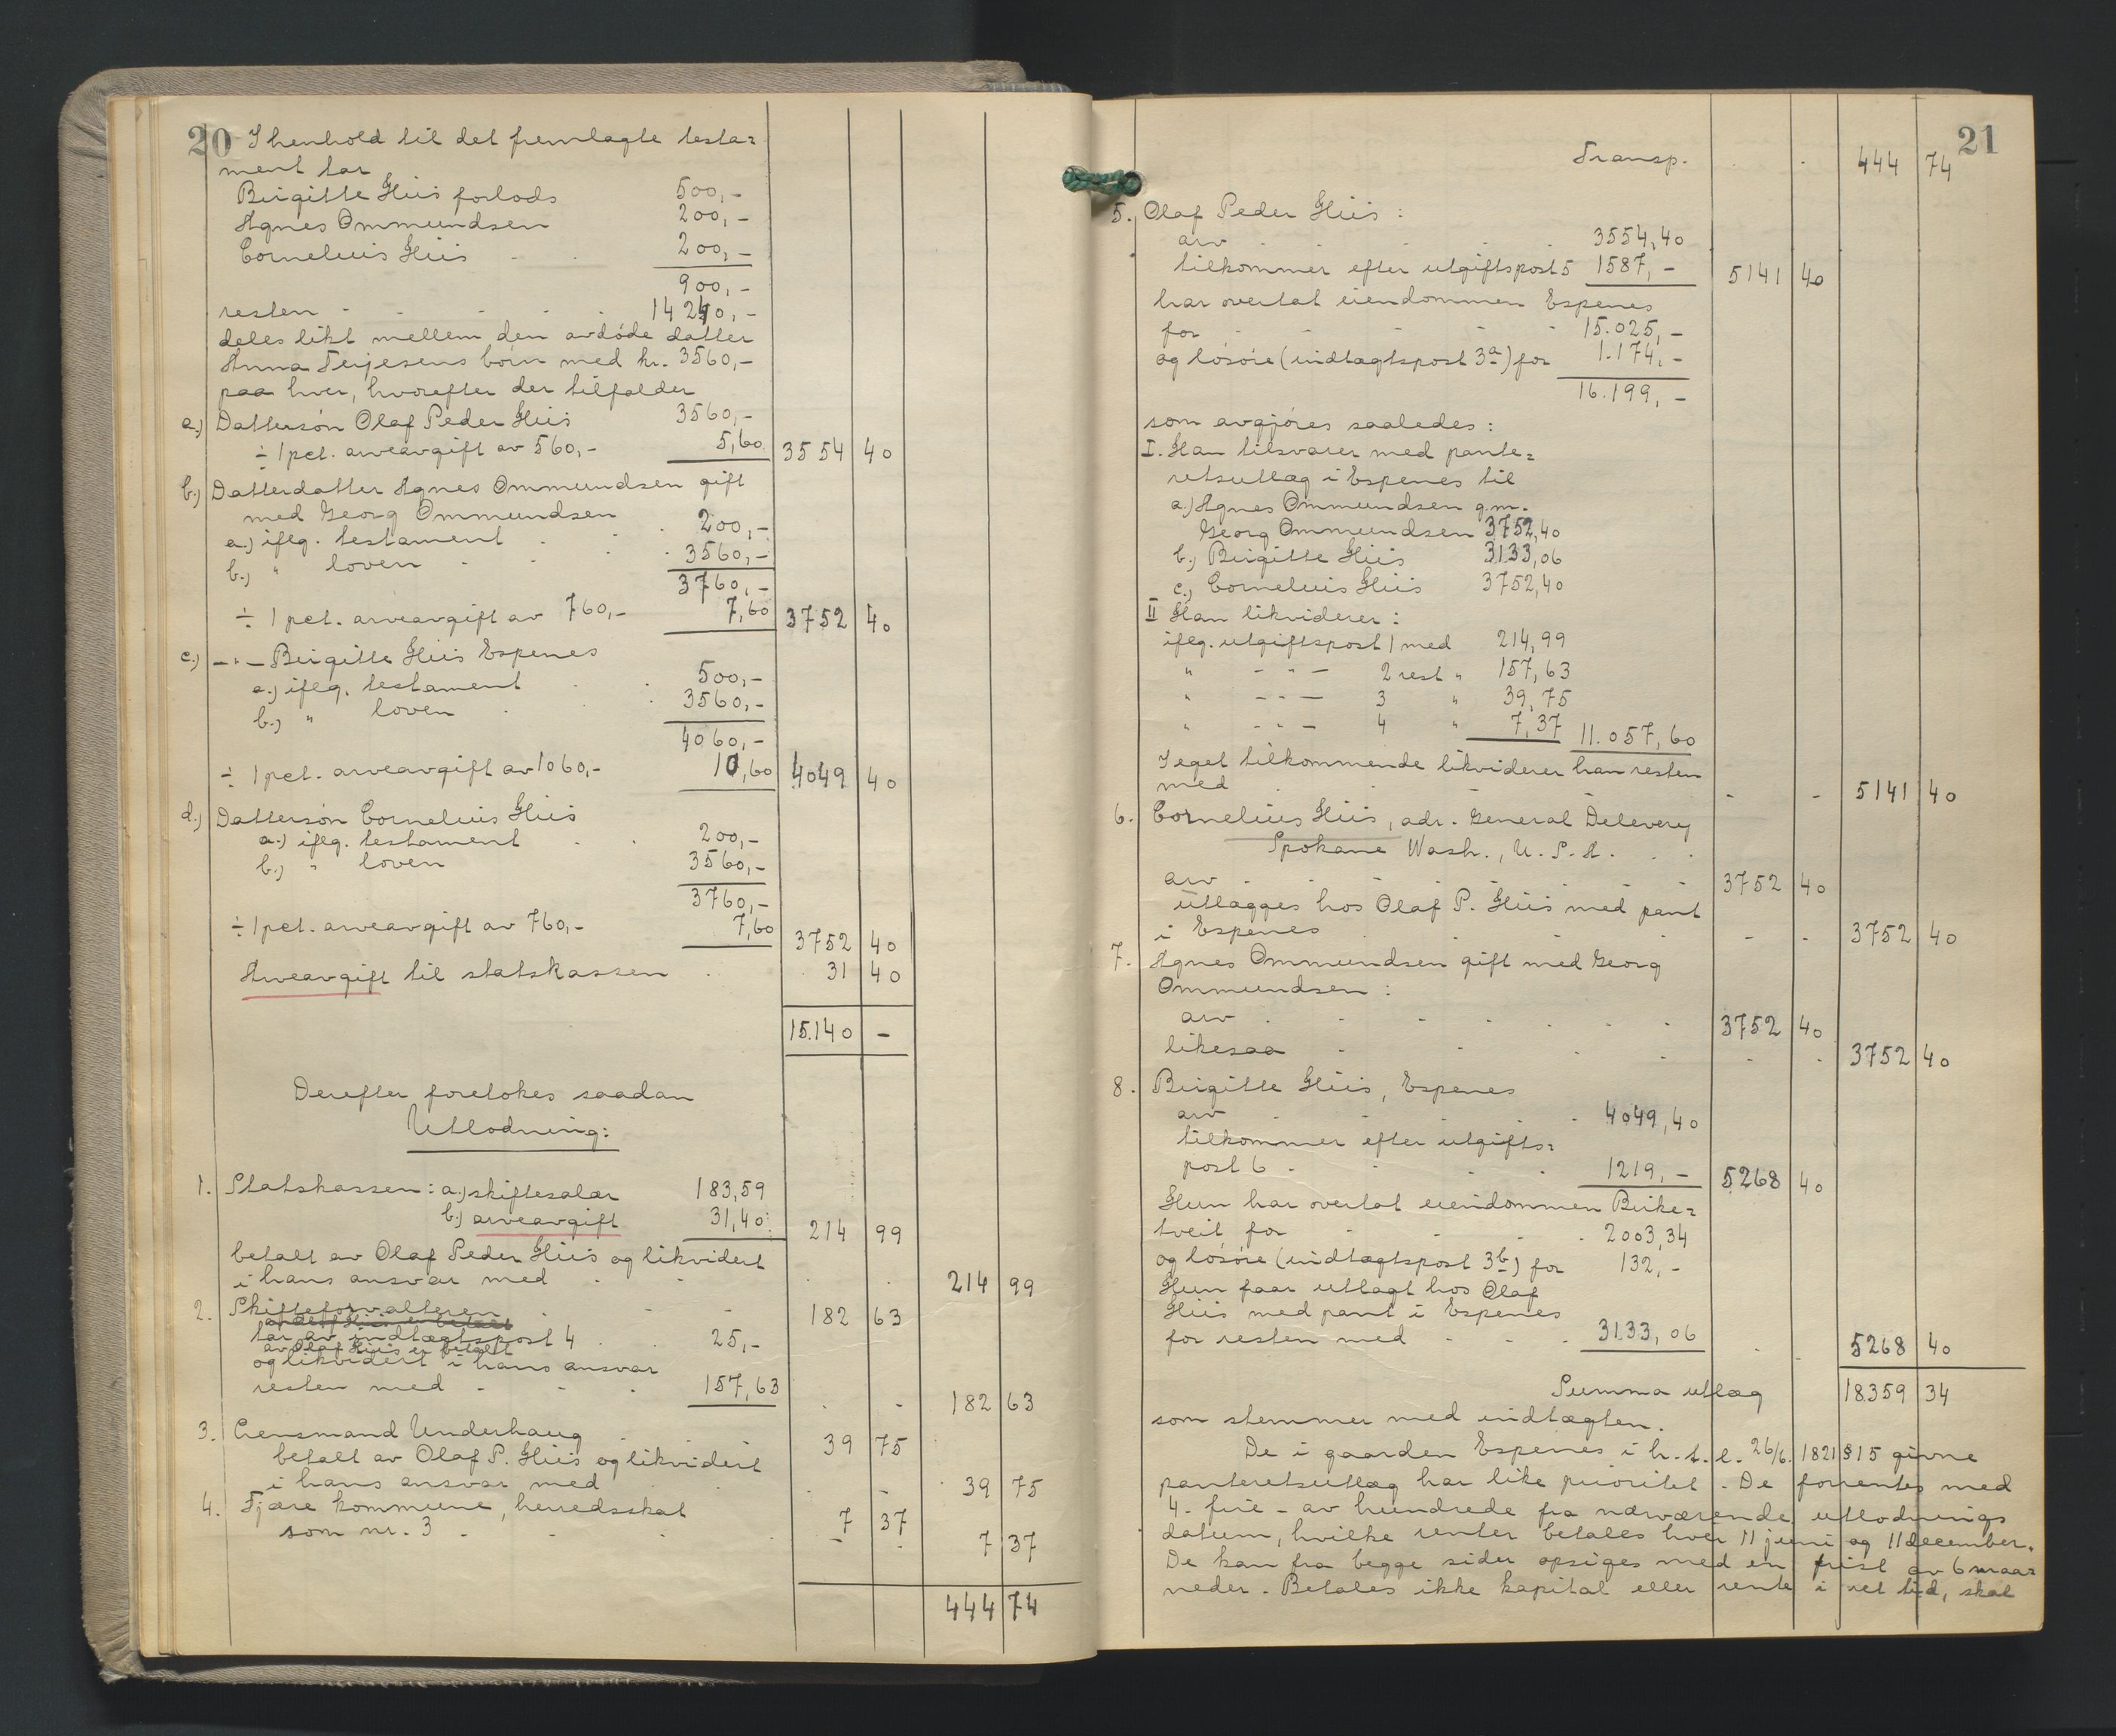 20
I henhold til det fremlagte testa=
ment tar
Birgitte Hiis forlods 500,-
Agnes Ommundsen 200,-
Cornelius Hiis 200,-
900,-
resten 14240,-
deles likt mellem den avdøde datter
Anna Terjesens børn med kr. 3560,-
paa hver, hvorefter der tilfalder
a.) Dattersøn Olaf Peder Hiis 3560,-
÷ 1 pct. arveavgift av 560,- 5,60 3554 40
b.) Datterdatter Agnes Ommundsen gift
med Georg Ommundsen
a.) iflg. testament 200,-
b.) " loven 3560,-
3760,-
÷ 1 pct. arveavgift av 760,- 7,60 3752 40
c.) -"- Birgitte Hiis Espenes
a.) iflg. testament 500,-
b.) " loven 3560,-
4060,-
÷ 1 pct. arveavgift av 1060,- 10,60 4049 40
d.) Dattersøn Cornelius Hiis
a.) iflg. testament 200,-
b.) " loven 3560,-
3760,-
÷ 1 pct. arveavgift av 760,- 7,60 3752 40
Arveavgift til statskassen 31 40
15.140 -
Derefter foretokes saadan
Utlodning:
1. Statskassen: a.) skiftesalær 183,59
b.) arveavgift 31,40 214 99
betalt av Olaf Peder Hiis og likvidert
i hans ansvar med 214 99
2. Skifteforvalteren 182 63
av Olaf Hiis er betalt
tar av indtægtspost 4 25,-
av Olaf Hiis er betalt
og likvidert i hans ansvar
resten med 157,63
182 63
3. Lensmand Underhaug 39 75
betalt av Olaf P. Hiis og likvidert
i hans ansvar med 39 75
4. Fjære kommune, herredsskat 7 37
som nr. 3 7 37
444 74
21
Transp. 444 74
5. Olaf Peder Hiis:
arv 3554,40
tilkommer efter utgiftspost 5 1587,- 5141 40
har overtat eiendommen Espenes
for 15.025,-
og løsøre (indtægtspost 3a) for 1.174,-
16.199,-
som avgjøres saaledes:
I. Han tilsvarer med pante=
retsutlæg i Espenes til
a.) Agnes Ommundsen g.m.
Georg Ommundsen 3752,40
b.) Birgitte Hiis 3133,06
c.) Cornelius Hiis 3752,40
II Han likviderer:
iflg. utgiftspost 1 med 214,99
" -"- 2 rest " 157,63
" -"- 3 " 39,75
" -"- 4 " 7,37 11.057,60
I eget tilkommende likviderer han resten
med 5141 40
6. Cornelius Hiis, adr. General Delevery
Spokane Wash., U.S.A.
arv 3752 40
utlægges hos Olaf P. Hiis med pant
i Espenes 3752 40
7. Agnes Ommundsen gift med Georg
Ommundsen:
arv 3752 40
likesaa 3752 40
8. Birgitte Hiis, Espenes
arv 4049,40
tilkommer efter utgifts=
post 6 1219,- 5268 40
Hun har overtat eiendommen Birke=
tveit for 2003,34
og løsøre (indtægtspost 3b) for 132,-
Hun faar utlagt hos Olaf
Hiis med pant i Espenes
for resten med 3133,06
5268 40
Summa utlæg 18359 34
som stemmer med indtægten.
De i gaarden Espenes i h.t.l. 26/6. 1821 § 15 givne
panteretsutlæg har like prioritet. De forrentes med
4 - fire - av hundrede fra nærværende utlodnings
datum, hvilke renter betales hver 11 juni og 11 december.
De kan fra begge sider opsiges med en frist av 6 maa=
neder. Betales ikke kapital eller rente i ret tid, skal